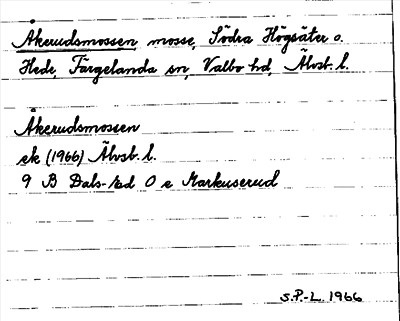 Åkerudsmossen, mosse, Södra Högsäter o.
Hede Färgelanda sn, Valbo hd, Älvsb. l.
Åkerudsmossen
ek (1966) Älvsb. l.
9 B Dals-Ed O e Markuserud
S.P.-L. 1966